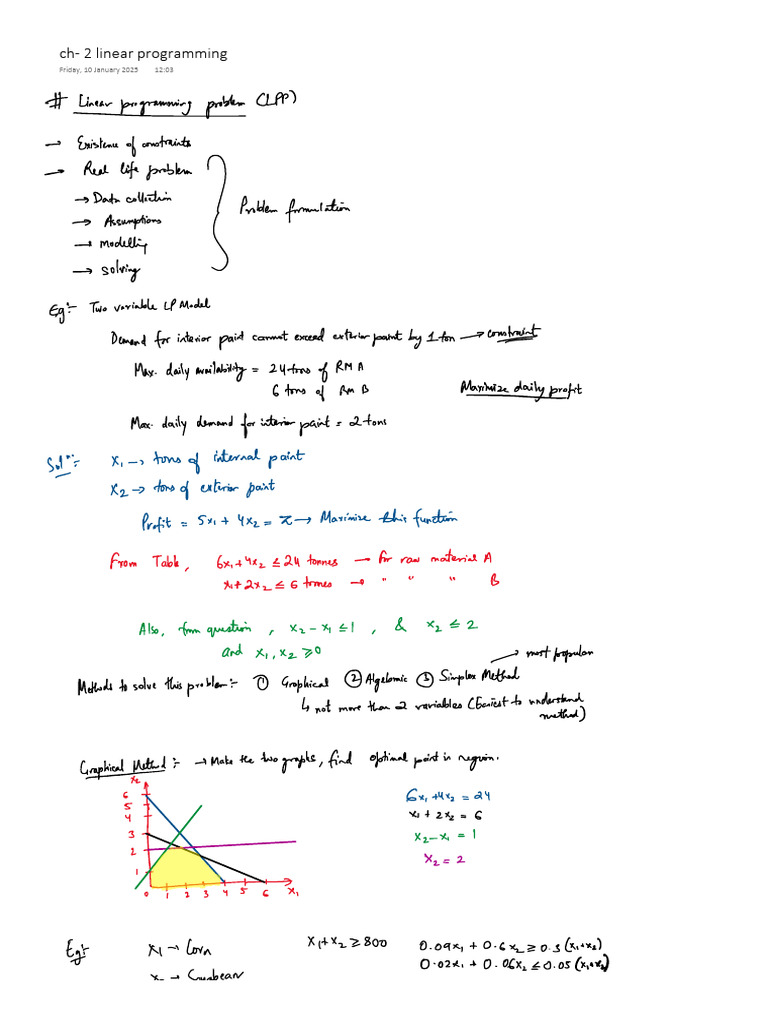 ch- 2 linear programming
Friday, 10 January 2025 12:03
# Linear programming problem (LPP)
→ Existence of constraints
→ Real life problem
→ Data collection
→ Assumptions
→ Modelling
→ Solving
Problem formulation
Eg:- Two variable LP Model
Demand for interior paint cannot exceed exterior paint by 1 ton → constraint
Max. daily availability = 24 tons of RM A
6 tons of RM B
Maximize daily profit
Max. daily demand for interior paint = 2 tons
Solⁿ:- x₁ → tons of internal paint
x₂ → tons of exterior paint
Profit = 5x₁ + 4x₂ = z → Maximize this function
From Table, 6x₁+4x₂ ≤ 24 tonnes → for raw material A
x₁+2x₂ ≤ 6 tonnes → " " " B
Also, from question, x₂ - x₁ ≤ 1, & x₂ ≤ 2
and x₁, x₂ ≥ 0
→ most popular
Methods to solve this problem:- ① Graphical ② Algebraic ③ Simplex Method
↳ not more than 2 variables (Easiest to understand method)
Graphical Method:- → Make the two graphs, find optimal point in region.
x₂
6
5
4
3
2
1
0 1 2 3 4 5 6 x₁
6x₁+4x₂ = 24
x₁ + 2x₂ = 6
x₂ - x₁ = 1
x₂ = 2
Eg:- x₁ → Corn
x₁+x₂ ≥ 800
0.09x₁ + 0.6x₂ ≥ 0.3 (x₁+x₂)
0.02x₁ + 0.06x₂ ≤ 0.05 (x₁+x₂)
x →